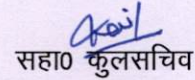 सहा0 कुलसचिव